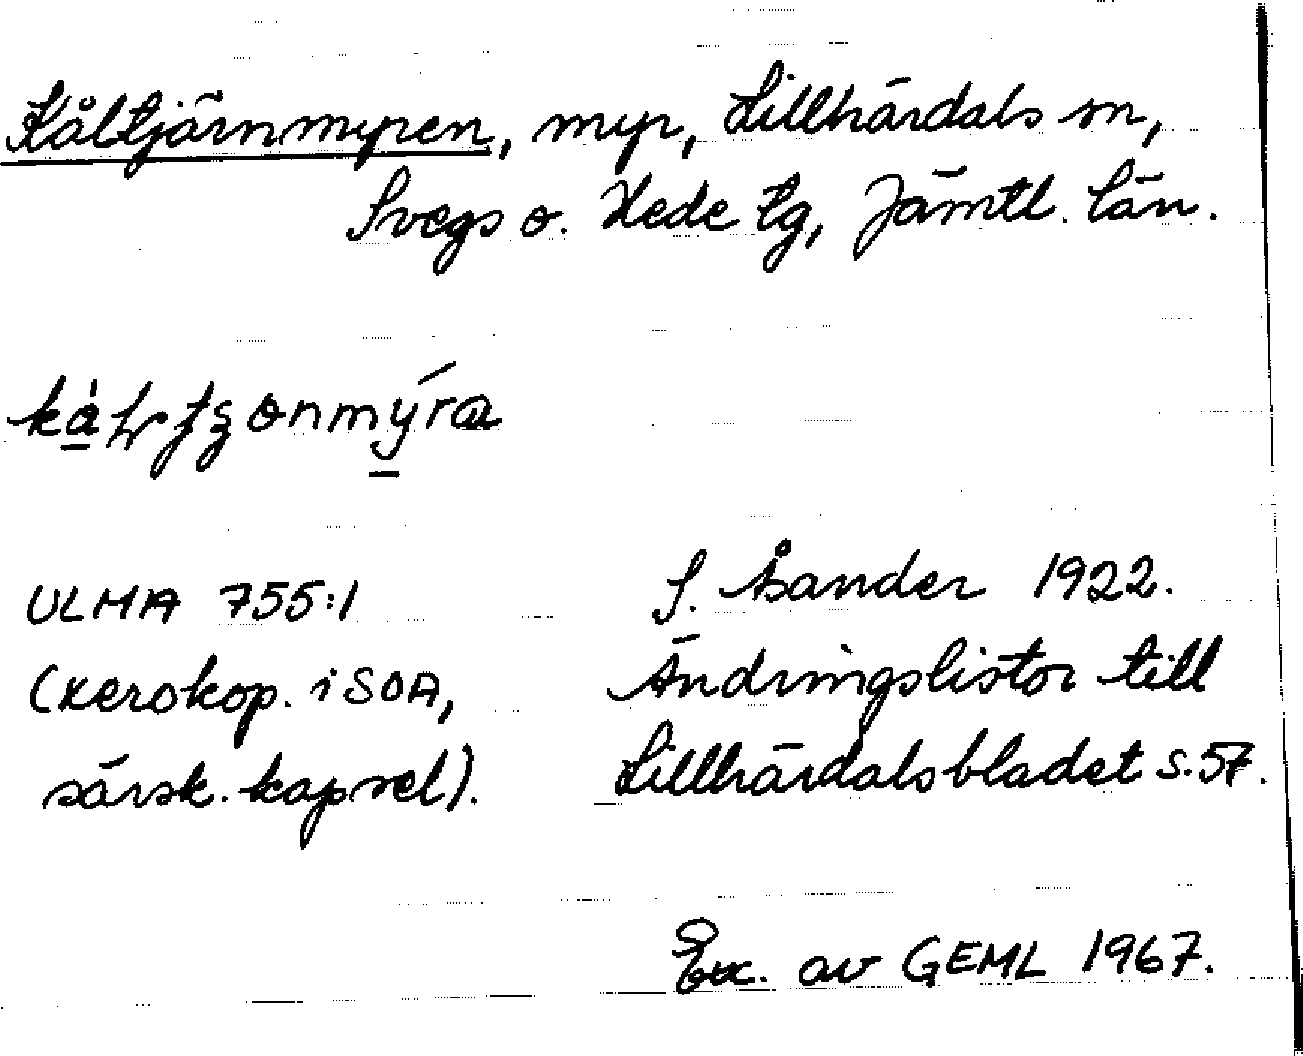 Kåltjärnmyren, myr, Lillhärdals sn,
Svegs o. Hede tg, Jämtl. län.
ULMA 755:1
S. Åander 1922.
(xerokop. i SOA,
Ändringslistor till
särsk. kapsel).
Lillhärdalsbladet s. 57.
Exc. av GEML 1967.